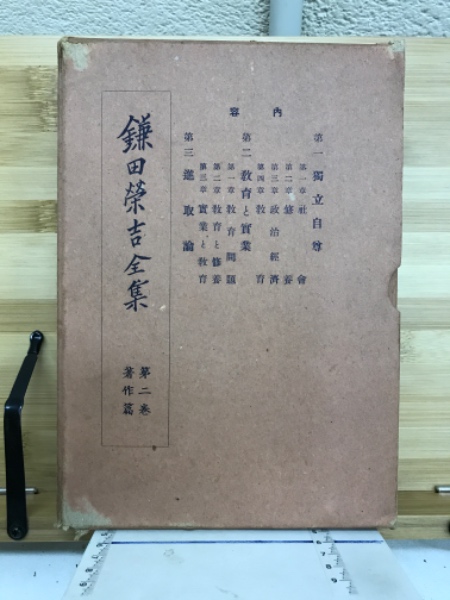 内容
第一 獨立自尊
第一章 社會
第二章 修養
第三章 政治經濟
第四章 教育
第二 教育と實業
第一章 教育問題
第二章 教育と修養
第三章 實業と教育
第三 進取論
鎌田榮吉全集
第二巻
著作篇